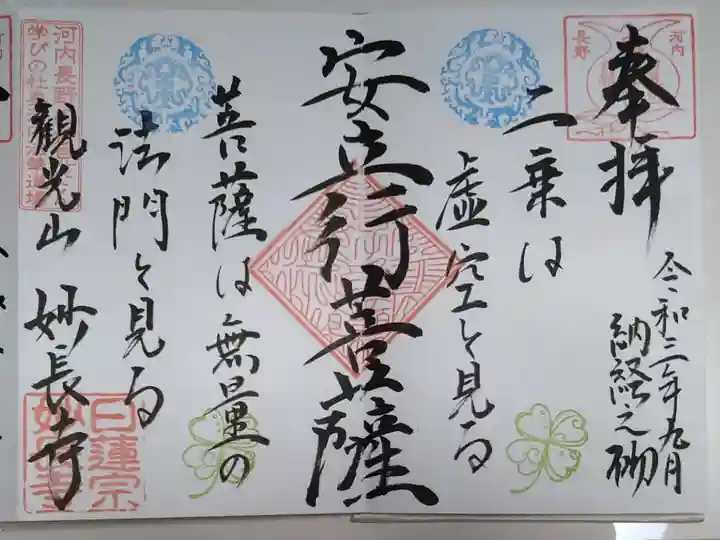 奉拝
令和三年九月
納経之砌
河内
長野
二乗は
虚空を見る
安立行菩薩
菩薩は無量の
法門を見る
観光山 妙長寺
河内長野
学びの杜
日蓮宗
妙長寺